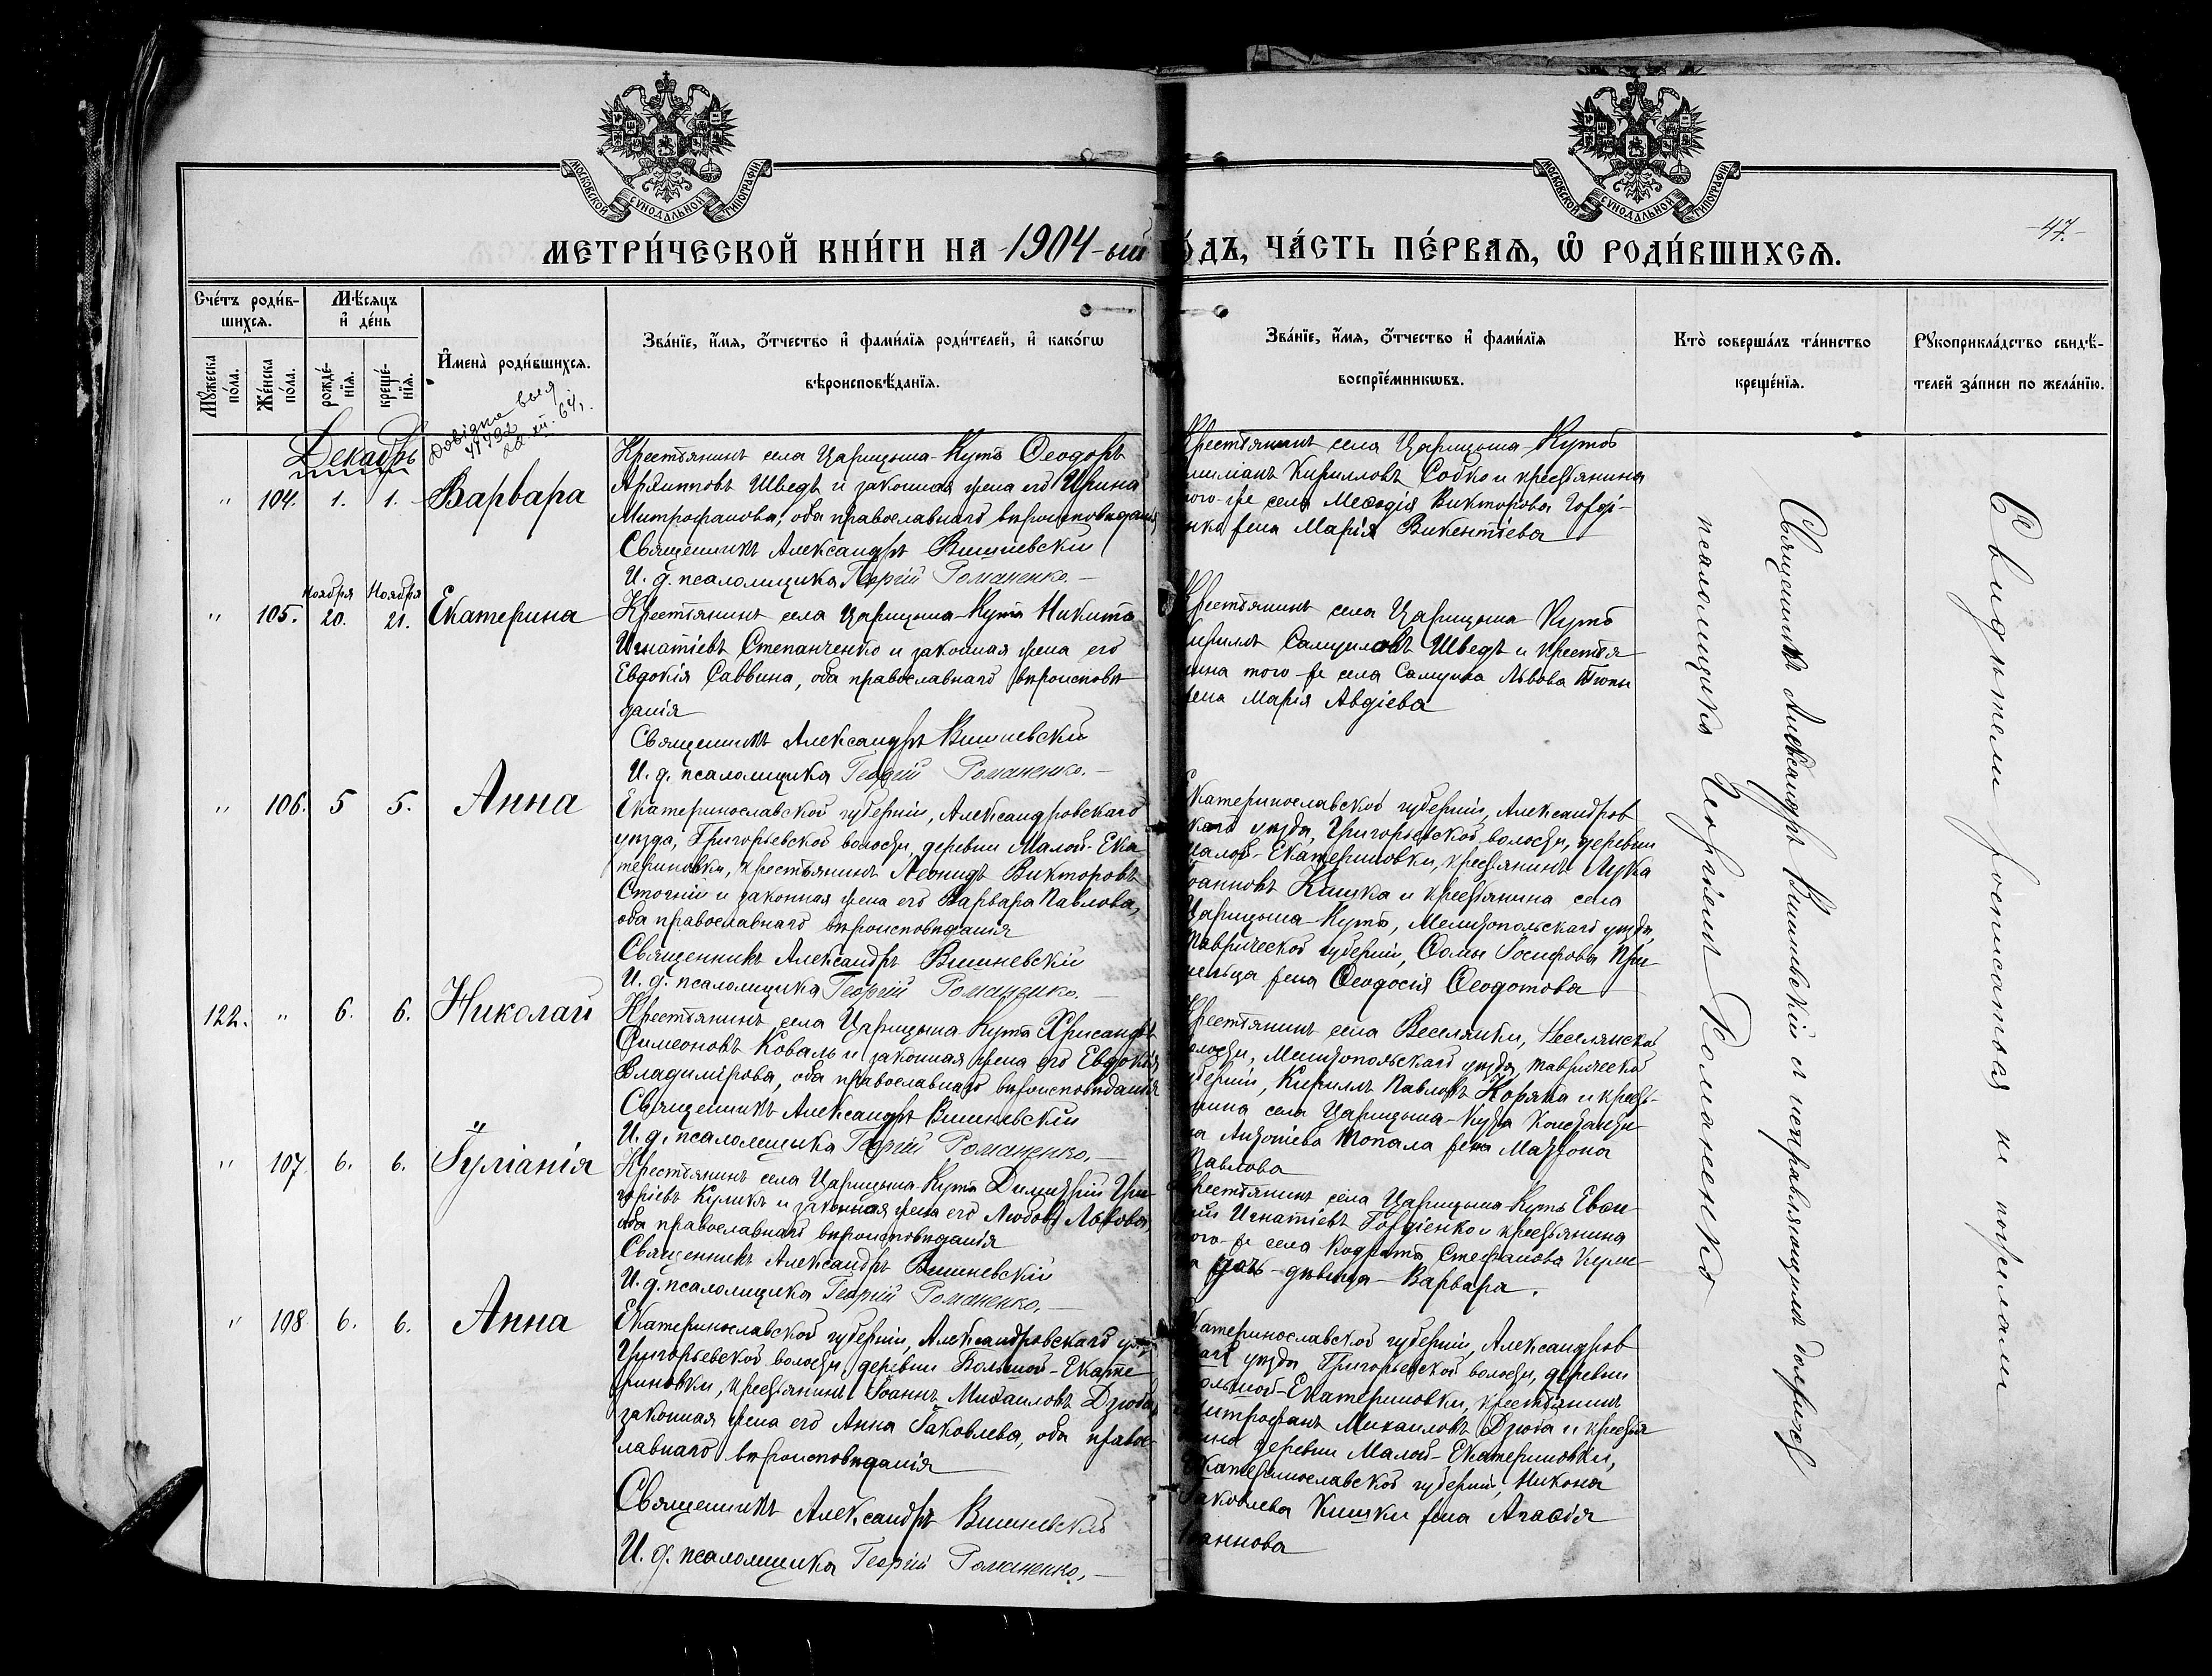 МОСКОВСКОЙ СѴНОДАЛЬНОЙ ТИПОГРАФІИ
МОСКОВСКОЙ СѴНОДАЛЬНОЙ ТИПОГРАФІИ
-47.-
МЕТРИ́ЧЕСКОЙ КНИ́ГИ НА -1904-ый
ГО́ДЪ, ЧА́СТЬ ПЕ́РВАѦ, Ѡ҆ РОДИ́ВШИХСѦ.
Сче́тъ роди́в-
шихсѧ.
Мꙋ́жеска по́ла.
Же́нска по́ла.
Мѣ́сѧцъ
и҆ де́нь
рожде́-
нїѧ.
креще́-
нїѧ.
И҆мена̀ роди́вшихсѧ.
Зва́нїе, и҆́мѧ, ѻ҆́тчество и҆ фами́лїѧ роди́телей, и҆ како́гѡ
вѣроисповѣ́данїѧ.
Зва́нїе, и҆́мѧ, ѻ҆́тчество и҆ фами́лїѧ
воспрїе́мникѡвъ.
Кто̀ соверша́лъ та́инство
креще́нїѧ.
Рꙋкоприкла́дство свидѣ́-
телей за́писи по жела́нїю.
Декабрь
" 104. 1. 1. Варвара
Крестьянинъ села Царицына-Кута Ѳеодоръ
Архипповъ Шведъ и законная жена его Ирина
Митрофанова, оба православнаго вѣроисповѣданія
Священникъ Александръ Вишневскій
И. д. псаломщика Георгій Романенко.-
Крестьянинъ села Царицына-Кута
Кирилловъ Собко и крестьянина
того-же села Меѳодія Викторова Горді-
енка жена Марія Викентіева
" 105. Ноября 20. Ноября 21. Екатерина
Крестьянинъ села Царицына-Кута Никита
Игнатіевъ Степанченко и законная жена его
Евдокія Саввина, оба православнаго вѣроисповѣ-
данія
Священникъ Александръ Вишневскій
И. д. псаломщика Георгій Романенко.-
Крестьянинъ села Царицына-Кута
Кириллъ Самуиловъ Шведъ и крестья-
нина того-же села Самуила Львова
жена Марія Авдіева
" 106. 5 5. Анна
Екатеринославской губерніи, Александровскаго
уѣзда, Григорьевской волости, деревни Малой-Ека
териновки, крестьянинъ Леонидъ Викторовъ
Стогній и законная жена его Варвара Павлова,
оба православнаго вѣроисповѣданія
Священникъ Александръ Вишневскій
И. д. псаломщика Георгій Романенко.-
Екатеринославской губерніи, Александров
скаго уѣзда, Григорьевской волости, деревни
Малой-Екатериновки, крестьянинъ Лука
Іоанновъ Кишка и крестьянина села
Царицына-Кута, Мелитопольскаго уѣзда,
Таврической губерніи, Ѳомы Іосифова При-
шельца жена Ѳеодосія Ѳеодотова
122. " 6. 6. Николай
Крестьянинъ села Царицына-Кута Хрисанфъ
Симеоновъ Коваль и законная жена его Евдокія
Владимірова, оба православнаго вѣроисповѣданія
Священникъ Александръ Вишневскій
И. д. псаломщика Георгій Романенко.-
Крестьянинъ села Веселянки, Веселянской
волости, Мелитопольскаго уѣзда, Таврической
губерніи, Кириллъ Павловъ Коряка и кресть-
янина села Царицына-Кута Константи-
на Антоніева Топала жена Матрона
Павлова
" 107 6. 6. Іуліанія
Крестьянинъ села Царицына-Кута Димитрій Гри-
горіевъ Куликъ и законная жена его Любовь Львова,
оба православнаго вѣроисповѣданія
Священникъ Александръ Вишневскій
И. д. псаломщика Георгій Романенко.-
Крестьянинъ села Царицына-Кута
Игнатіевъ Гордіенко и крестьянина
того-же села Кодрата Стефанова Кули-
ка дочь-дѣвица-Варвара.
" 108 6. 6. Анна
Екатеринославской губерніи, Александровскаго уѣзда,
Григорьевской волости, деревни Большой-Екате
риновки, крестьянинъ Іоаннъ Михаиловъ Дзюба и
законная жена его Анна Іаковлева, оба право-
славнаго вѣроисповѣданія
Священникъ Александръ Вишневскій
И. д. псаломщика Георгій Романенко.-
Екатеринославской губерніи, Александров
скаго уѣзда, Григорьевской волости, деревни
Большой-Екатериновки, крестьянинъ
Митрофанъ Михаиловъ Дзюба и крестья
нина деревни Малой-Екатериновки,
Екатеринославской губерніи, Никона
Іаковлева Кишки жена Агаѳія
Іоаннова
Священникъ Александръ Вишневскій с исправляющимъ должность
псаломщика Георгіемъ Романенко
Свидѣтели росписаться не пожелали